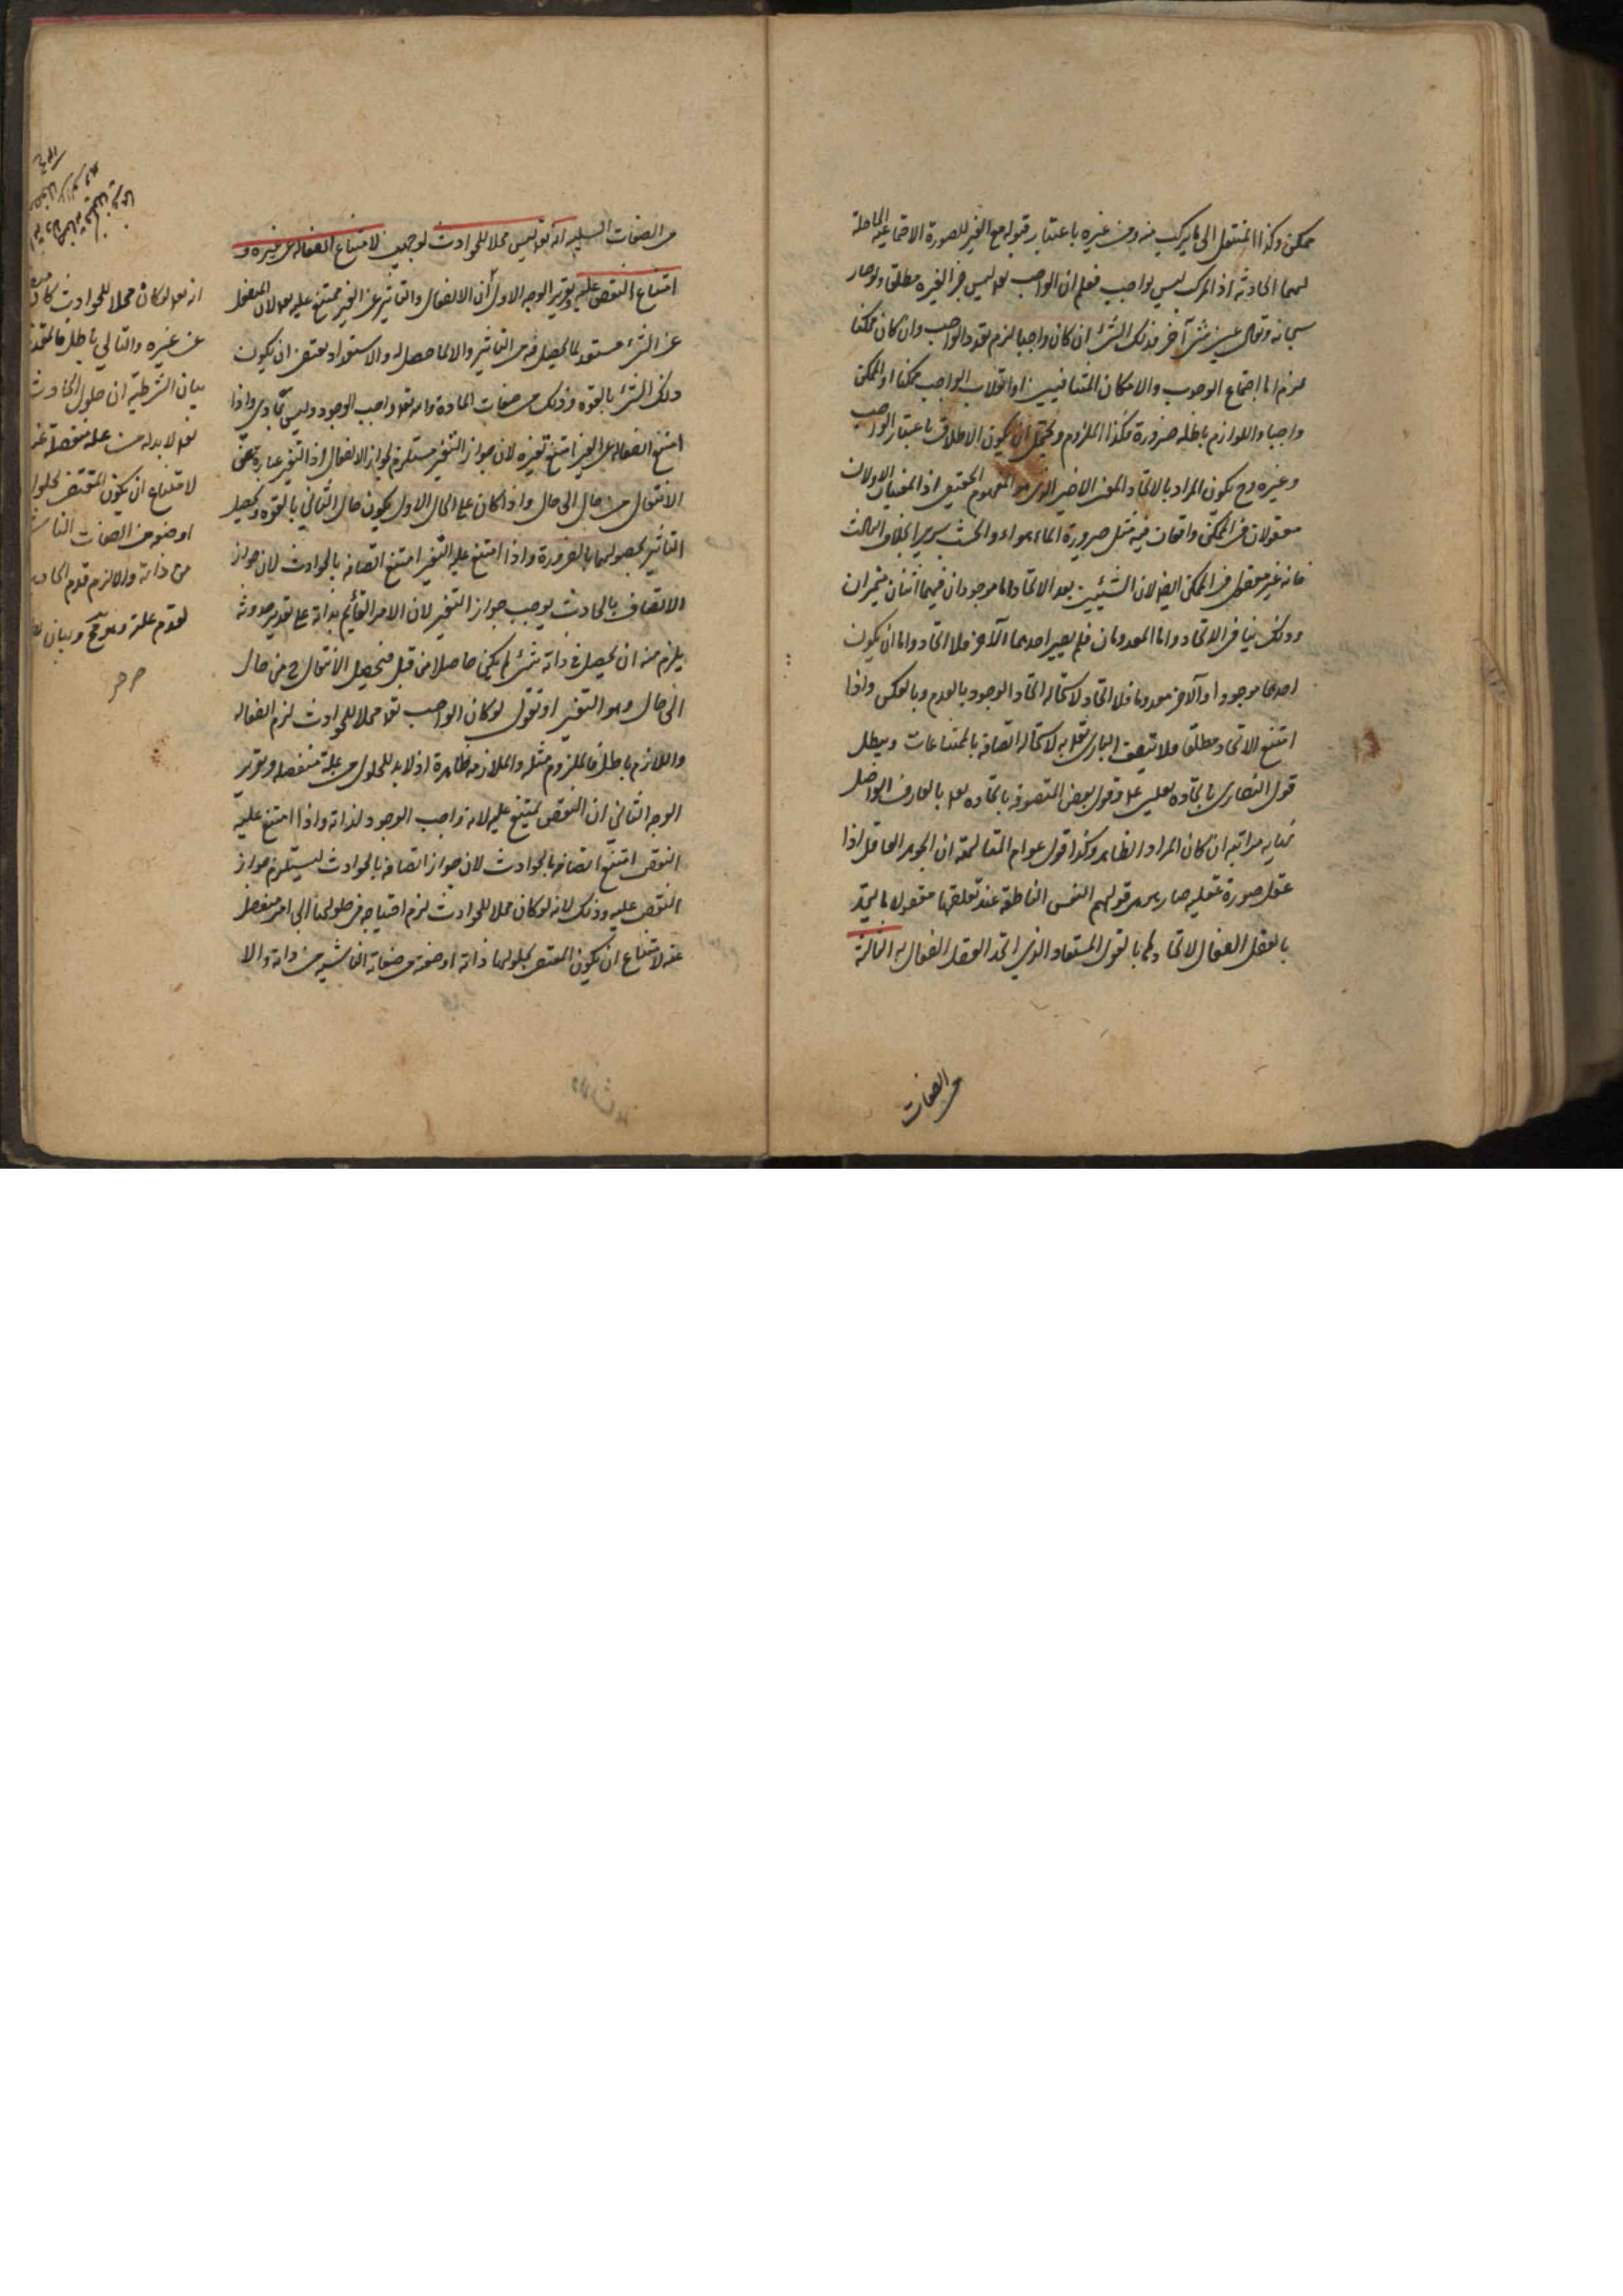 ممكن وكذا المنتقل الى ما يركب منه ومن غيره باعتبار قبوله مع الغير للصورة الاجتماعية الحاصلة
لهما الحادثة اذ المركب ليس بواجب فعلم ان الواجب تعالى ليس جزأ لغيره مطلقا ولو صار
سبحانه وتعالى عين شئ آخر فذلك الشئ ان كان واجبا لزم تعدد الواجب وان كان ممكنا
لزم اما اجتماع الوجوب والامكان المتنافيين او انقلاب الواجب ممكنا او الممكن
واجبا واللوازم باطلة ضرورة فكذا الملزوم ويحتمل ان يكون الاطلاق باعتبار الواجب
وغيره وح يكون المراد بالاتحاد المعنى الاخير الذى هو المفهوم الحقيقى اذ المعنيان الاولان
معقولان فى الممكن واقعان فيه مثل صيرورة الماء هواء والخشب سريرا بخلاف الثالث
فانه غير معقول فى الممكن ايضا لان الشيئين بعد الاتحاد اما موجودان فهما اثنان متميزان
وذلك ينافى الاتحاد واما المعدومان فلم يصير احدهما الآخر فلا اتحاد واما ان يكون
احدهما موجودا والآخر معدوما فلا اتحاد لاستحالة اتحاد الوجود بالعدم وبالعكس واذا
امتنع الاتحاد مطلقا فلا يتصف البارى تعالى به لاستحالة اتصافه بالممتناعات ويبطل
قول النصارى باتحاده بعيسى ع وقول بعض المتصوفة باتحاده تعالى بالعارف الواصل
نهاية مراتبه ان كان المراد الظاهر وكذا قول عوام المتألهة ان الجوهر العاقل اذا
عقل صورة عقلية صار هو هو قولهم النفس الناطقة عند تعلقها معقولا ما يتحد
بالعقل الفعال لاتحادها بالعقل المستفاد الذى اتحد العقل الفعال به الثالثة
من الصفات
من الصفات السلبية انه تعالى ليس محلا للحوادث لوجهين لامتناع انفعاله عن غيره و
امتناع النقص عليه وتقرير الوجه الاول ان الانفعال والتأثير عن الغير ممتنع عليه تعالى لان المنفعل
عن الشئ مستعد لما يحصل فيه من التأثير والا لما حصل له والاستعداد يقتضى ان يكون
ذلك الشئ بالقوة وذلك من صفات المادة وانه تعالى واجب الوجود وليس بمادى واذا
امتنع انفعاله عن الغير امتنع تغيره لان جواز التغير مستلزم لجواز الانفعال اذ التغير عبارة عن
الانتقال من حال الى حال واذا كان على الحال الاول يكون حال الثانى بالقوة ويحصل
التأثير بحصولهما بالضرورة واذا امتنع عليه التغير امتنع اتصافه بالحوادث لان جواز
الاتصاف بالحادث يوجب جواز التغير لان الامر القائم بذاته على تقدير حدوثه
يلزم منه ان يحصل فى ذاته شئ لم يكن حاصلا من قبل فيحصل الانتقال ح من حال
الى حال وهو التغير او نقول لو كان الواجب تعالى محلا للحوادث لزم انفعاله
واللازم باطل فالملزوم مثله والملازمة ظاهرة اذ لا بد للحلول من علة منفصلة وتقرير
الوجه الثانى ان النقص يمتنع عليه لانه واجب الوجود لذاته واذا امتنع عليه
النقص امتنع اتصافه بالحوادث لان جواز اتصافه بالحوادث يستلزم جواز
النقص عليه وذلك لانه لو كان محلا للحوادث لزم احتياجه فى حلولها الى امر منفصل
عنه لامتناع ان يكون المقتضى لحلولها ذاته او صفة من صفاته الناشية من ذاته والا
انه تعالى لو كان محلا للحوادث كان
عن غيره والتالى باطل فالمقدم
بيان الشرطية ان حلول الحادث
لا بد له من علة منفصلة عنه
لامتناع ان يكون المقتضى لحلوله
او صفة من الصفات
من ذاته والا لزم قدم الحادث
لقدم علته وهو مح وبيان